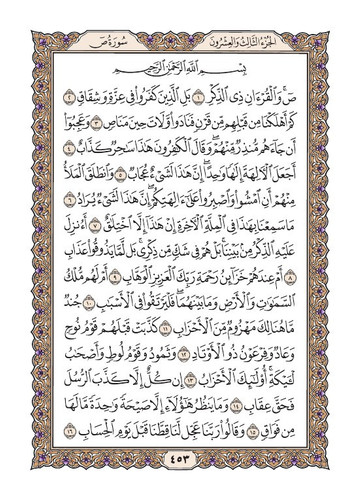 الجزء الثالث والعشرون
سورة ص
بِسْمِ اللَّهِ الرَّحْمَٰنِ الرَّحِيمِ
صٓ وَالْقُرْءَانِ ذِي الذِّكْرِ ١ بَلِ الَّذِينَ كَفَرُوا فِي عِزَّةٍ وَشِقَاقٍ ٢
كَمْ أَهْلَكْنَا مِن قَبْلِهِم مِّن قَرْنٍ فَنَادَوا وَّلَاتَ حِينَ مَنَاصٍ ٣ وَعَجِبُوا
أَن جَاءَهُم مُّنذِرٌ مِّنْهُمْ وَقَالَ الْكَٰفِرُونَ هَٰذَا سَٰحِرٌ كَذَّابٌ ٤
أَجَعَلَ الْءَالِهَةَ إِلَٰهًا وَٰحِدًا إِنَّ هَٰذَا لَشَيْءٌ عُجَابٌ ٥ وَانطَلَقَ الْمَلَأُ
مِنْهُمْ أَنِ امْشُوا وَاصْبِرُوا عَلَىٰ ءَالِهَتِكُمْ إِنَّ هَٰذَا لَشَيْءٌ يُرَادُ ٦
مَا سَمِعْنَا بِهَٰذَا فِي الْمِلَّةِ الْءَاخِرَةِ إِنْ هَٰذَا إِلَّا اخْتِلَٰقٌ ٧ أَءُنزِلَ
عَلَيْهِ الذِّكْرُ مِن بَيْنِنَا بَلْ هُمْ فِي شَكٍّ مِّن ذِكْرِي بَل لَّمَّا يَذُوقُوا عَذَابِ
٨ أَمْ عِندَهُمْ خَزَائِنُ رَحْمَةِ رَبِّكَ الْعَزِيزِ الْوَهَّابِ ٩ أَمْ لَهُم مُّلْكُ
السَّمَٰوَٰتِ وَالْأَرْضِ وَمَا بَيْنَهُمَا فَلْيَرْتَقُوا فِي الْأَسْبَٰبِ ١٠ جُندٌ
مَّا هُنَالِكَ مَهْزُومٌ مِّنَ الْأَحْزَابِ ١١ كَذَّبَتْ قَبْلَهُمْ قَوْمُ نُوحٍ
وَعَادٌ وَفِرْعَوْنُ ذُو الْأَوْتَادِ ١٢ وَثَمُودُ وَقَوْمُ لُوطٍ وَأَصْحَٰبُ
لْـَٔيْكَةِ أُولَٰئِكَ الْأَحْزَابُ ١٣ إِن كُلٌّ إِلَّا كَذَّبَ الرُّسُلَ
فَحَقَّ عِقَابِ ١٤ وَمَا يَنظُرُ هَٰؤُلَاءِ إِلَّا صَيْحَةً وَٰحِدَةً مَّا لَهَا
مِن فَوَاقٍ ١٥ وَقَالُوا رَبَّنَا عَجِّل لَّنَا قِطَّنَا قَبْلَ يَوْمِ الْحِسَابِ ١٦
٤٥٣